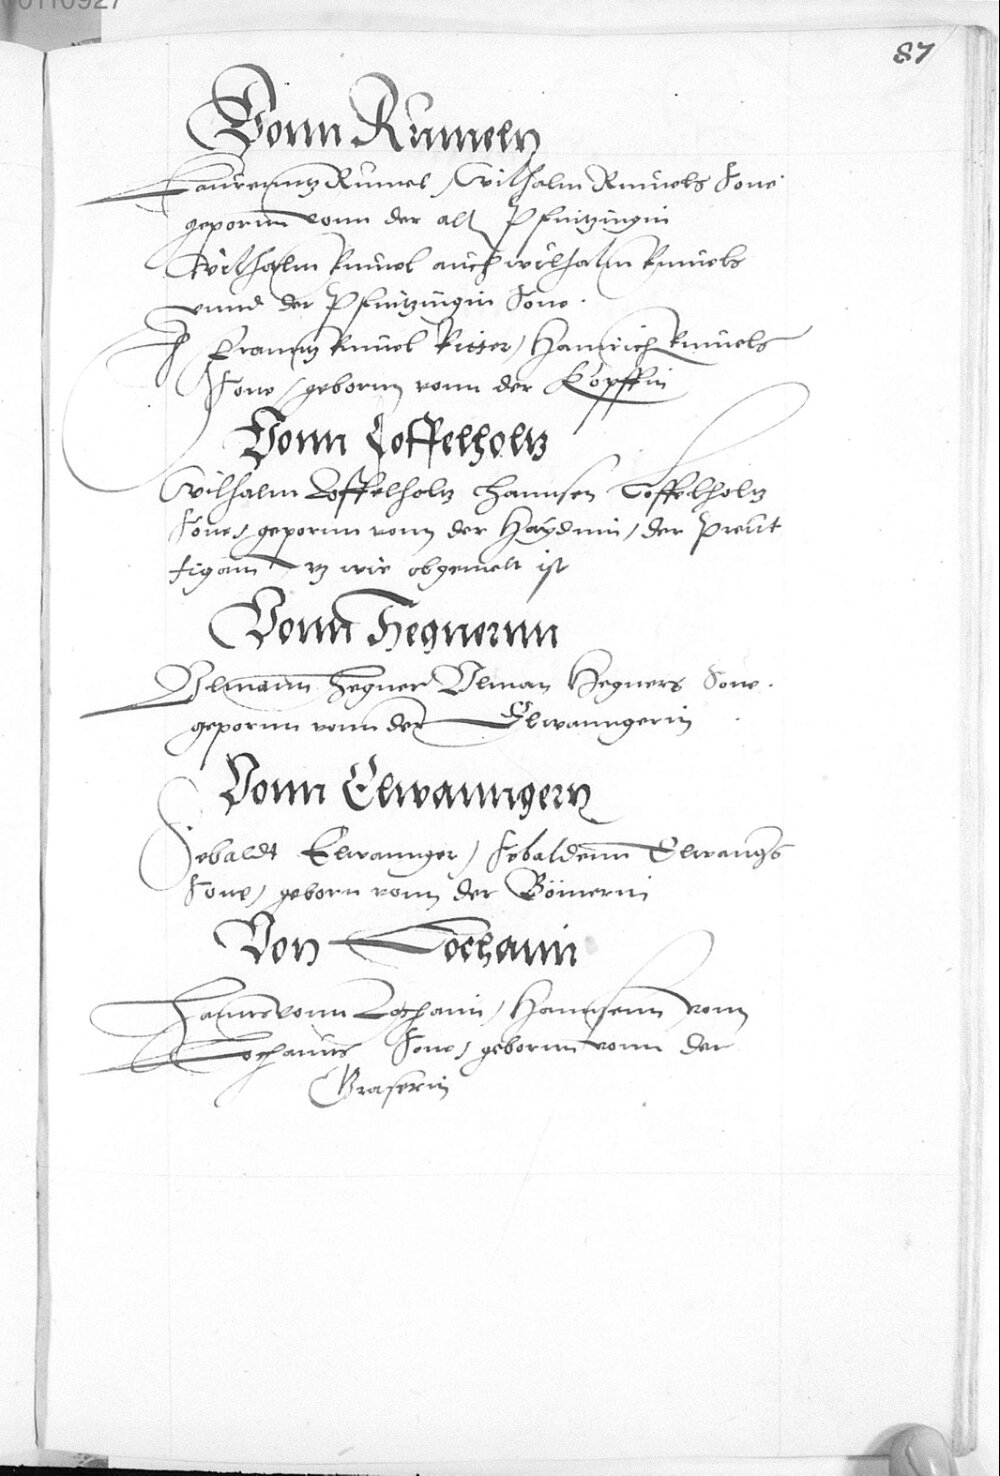 87
Vonn Rumeln
Laurenntz Rumel / Wilhalm Rumels Sone
gepornn vonn der alt Pfintzingin
Wilhalm Rumel auch wilhalm Rumels
vnnd der Pfintzingin Sone .
Franntz Rumel Ritter / Hainrich Rumels
Sone / geborn vonn der Köpffin
Vonn Loffelholtz
Wilhalm Loffelholtz Hannsen Loffelholtz
Sone / gepornn vonn der Haydnin / der
wie obgemelt ist
Vonn Hegnernn
Vlmann Hegner Vlman Hegners Sone .
gepornn vonn der Elwanngerin
Vonn Elwanngern
Sebaldt Elwannger / Sebaldenn Elwangers
Sone / geborn vonn der Bömerin
Von Lochaim
Hanns vonn Lochaim / Hannsenn vonn
Lochaims Sone / gebornn vonn der
Graserin